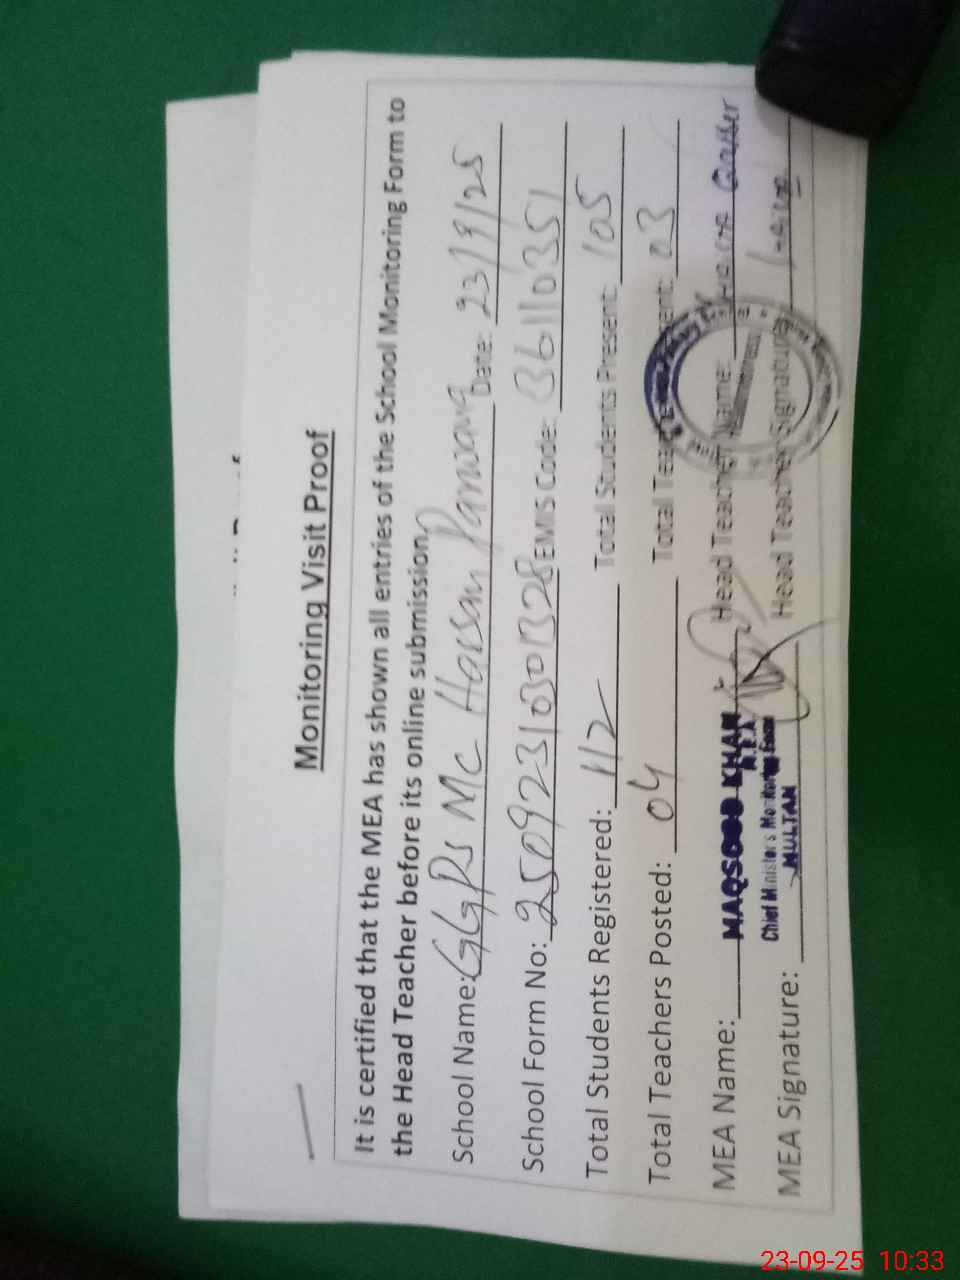 Monitoring Visit Proof
It is certified that the MEA has shown all entries of the School Monitoring Form to
the Head Teacher before its online submission.
School Name: GGPS MC Hassan Parwana Date: 23/9/25
School Form No: 25092310301328 EMIS Code: 36110351
Total Students Registered: 112 Total Students Present: 105
Total Teachers Posted: 04 Total Teachers Present: 03
MEA Name: MAQSOOD KHAN Head Teacher Name:
M.E.A
Chief Minister's Monitoring
MULTAN
MEA Signature: Head Teacher Signature:
23-09-25 10:33